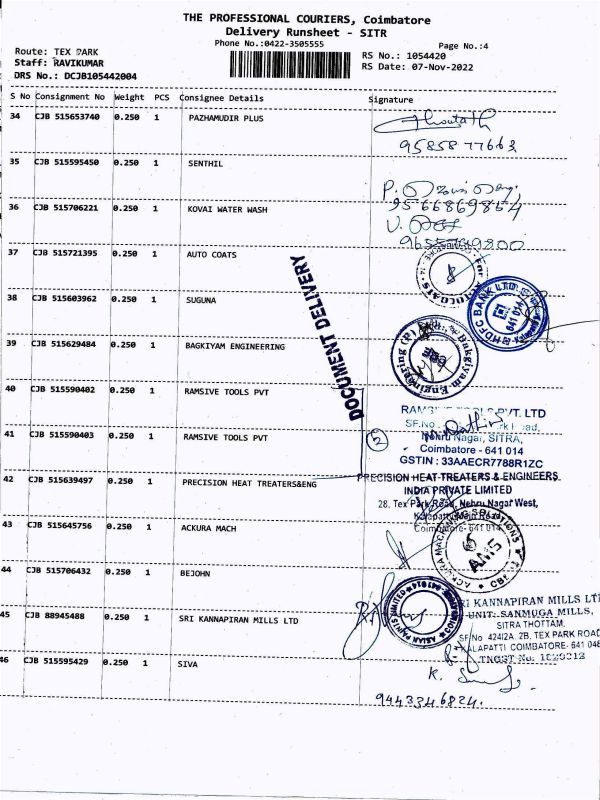 THE PROFESSIONAL COURIERS, Coimbatore
Delivery Runsheet - SITR
Phone No.:0422-3505555
Page No.:4
Route: TEX PARK
Staff: RAVIKUMAR
DRS No.: DCJB105442004
RS No.: 1054420
RS Date: 07-Nov-2022
S No Consignment No Weight PCS Consignee Details Signature
34 CJB 515653740 0.250 1 PAZHAMUDIR PLUS
9585877663
35 CJB 515595450 0.250 1 SENTHIL
36 CJB 515706221 0.250 1 KOVAI WATER WASH
9566869864
37 CJB 515721395 0.250 1 AUTO COATS
38 CJB 515603962 0.250 1 SUGUNA
HDFC BANK LTD
641 014
DOCUMENT DELIVERY
39 CJB 515629484 0.250 1 BAGKIYAM ENGINEERING
Bakgiyam Engineering (P)
40 CJB 515590402 0.250 1 RAMSIVE TOOLS PVT
PVT. LTD
SF.No.
Nehru Nagar, SITRA,
Coimbatore - 641 014
GSTIN : 33AAECR7788R1ZC
41 CJB 515590403 0.250 1 RAMSIVE TOOLS PVT
2
42 CJB 515639497 0.250 1 PRECISION HEAT TREATERS&ENG
PRECISION HEAT TREATERS & ENGINEERS
INDIA PRIVATE LIMITED
28, Tex Park Road, Nehru Nagar West,
Coimbatore- 641 014
43 CJB 515645756 0.250 1 ACKURA MACH
44 CJB 515706432 0.250 1 BEJOHN
ASIAN PAINTS LIMITED
45 CJB 88945488 0.250 1 SRI KANNAPIRAN MILLS LTD
KANNAPIRAN MILLS
UNIT: SANMUGA MILLS,
SITRA THOTTAM.
SF No 424/2A, 2B, TEX PARK ROAD
KALAPATTI COIMBATORE- 641 048
46 CJB 515595429 0.250 1 SIVA
9443346824.